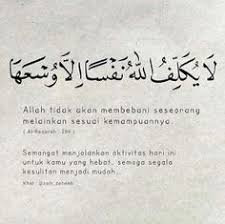 لَا يُكَلِّفُ اللّٰهُ نَفْسًا إِلَّا وُسْعَهَا
Allah tidak akan membebani seseorang
melainkan sesuai kemampuannya.
( Al-Baqarah : 286 )
Semangat menjalankan aktivitas hari ini
untuk kamu yang hebat, semoga segala
kesulitan menjadi mudah.